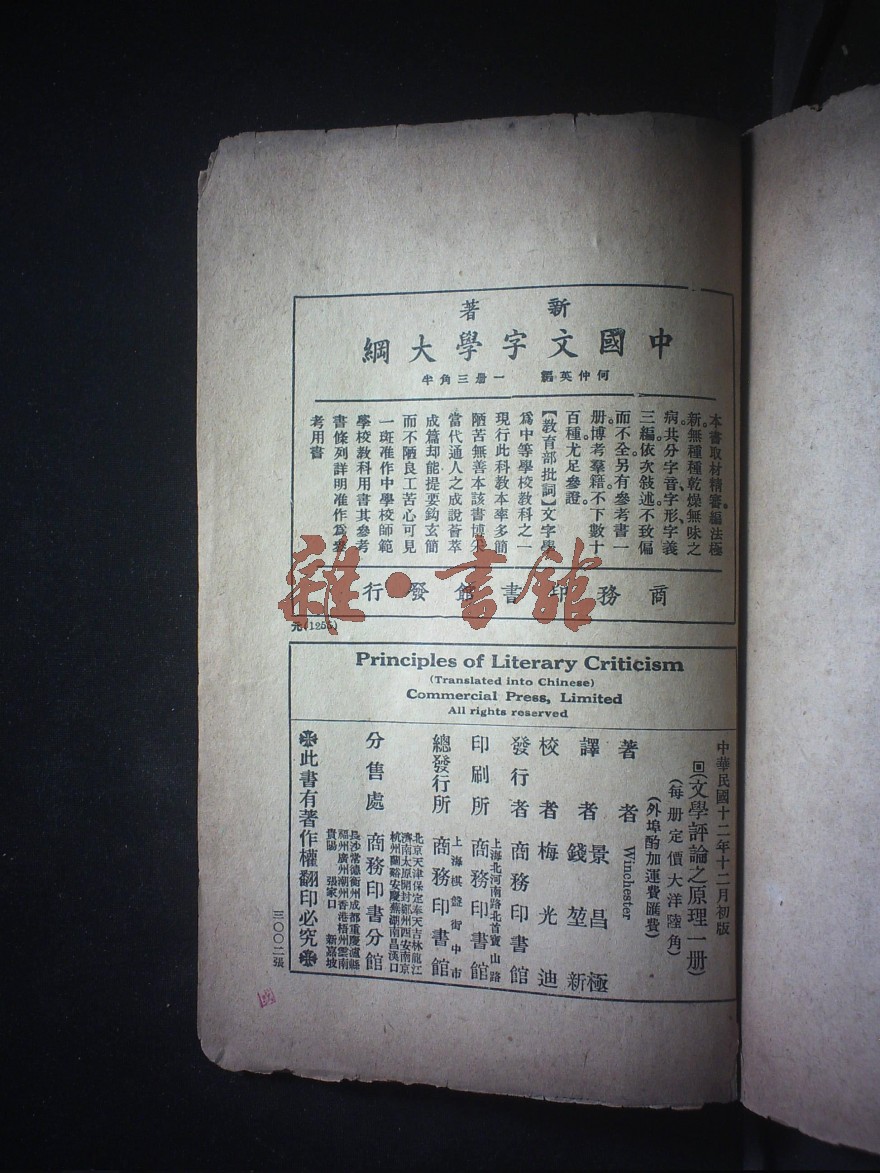 新著
中國文字學大綱
何仲英編 一册三角半
本書取材精審。編法極
新。無種種乾燥無味之
病。共分字音、字形、字義
三編。依次敍述。不致偏
而不全。另有參考書一
册。博考羣籍。不下數十
百種。尤足參證。
【教育部批詞】文字學
爲中等學校教科之一
現行此科教本率多簡
陋苦無善本該書博采
當代通人之成說薈萃
成篇却能提要鈎玄簡
而不陋良工苦心可見
一斑准作中學校師範
學校教科用書其參考
書條列詳明准作爲參
考用書
商務印書館發行
元(1255)
雜·書館
Principles of Literary Criticism
(Translated into Chinese)
Commercial Press, Limited
All rights reserved
中華民國十二年十二月初版
(文學評論之原理一册)
(每册定價大洋陸角)
(外埠酌加運費匯費)
著者 Winchester
譯者 景昌極 錢堃新
校者 梅光迪
發行者 商務印書館
印刷所 上海北河南路北首寶山路 商務印書館
總發行所 上海棋盤街中市 商務印書館
分售處 商務印書分館
北京天津保定奉天吉林龍江
濟南太原開封鄭州西安南京
杭州蘭谿安慶蕪湖南昌漢口
長沙常德衡州成都重慶瀘縣
福州廣州潮州香港梧州雲南
貴陽 張家口 新嘉坡
此書有著作權翻印必究
三〇〇二張